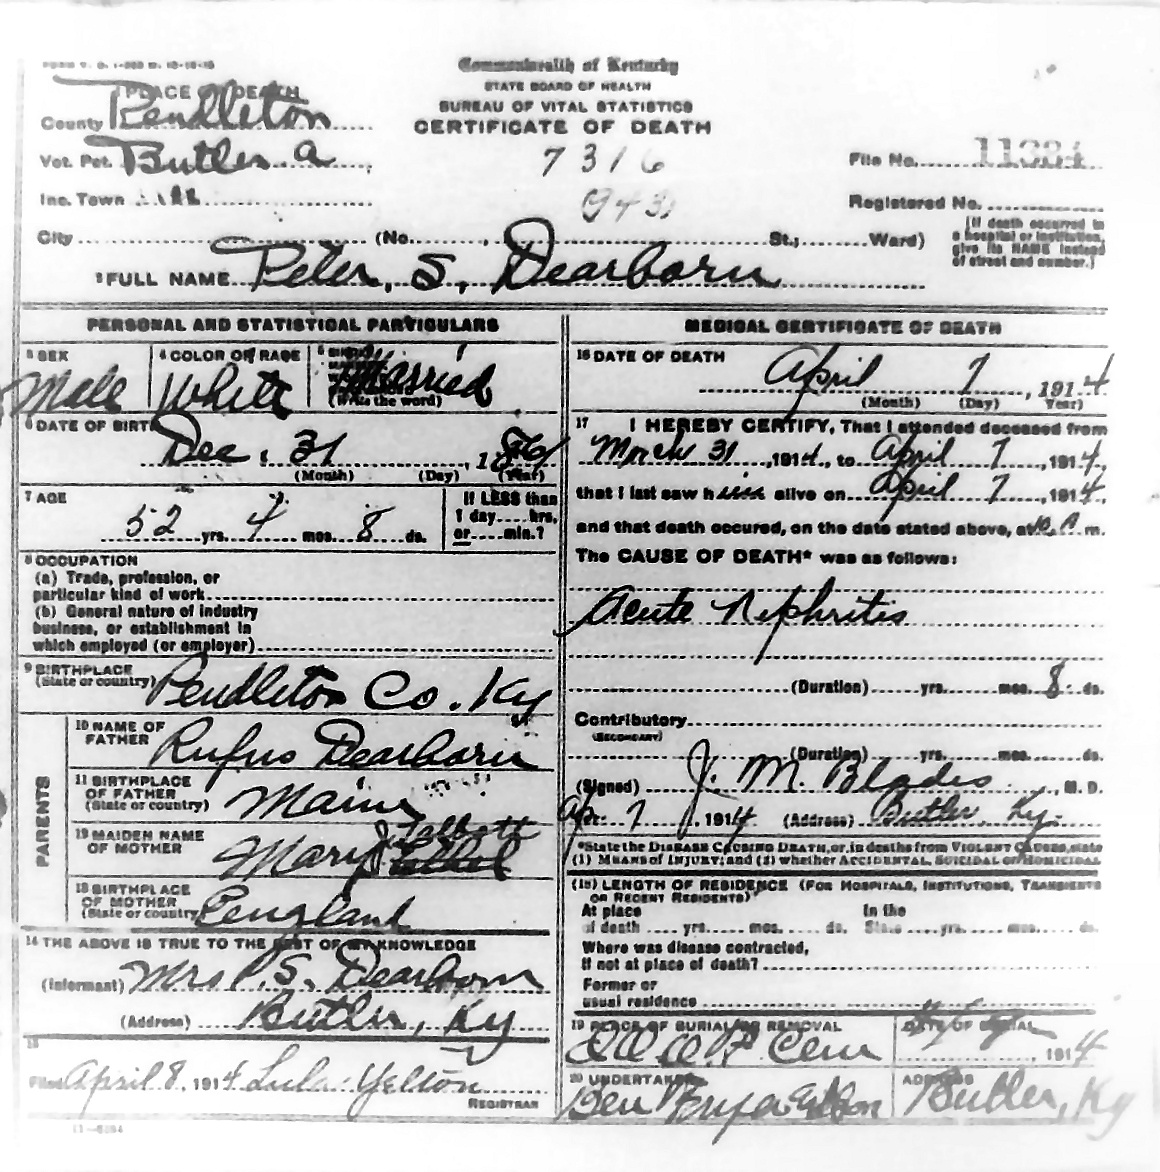 Commonwealth of Kentucky
STATE BOARD OF HEALTH
BUREAU OF VITAL STATISTICS
CERTIFICATE OF DEATH
PLACE OF DEATH
County Pendleton
Vot. Pct. Butler a
Inc. Town
7316
943
File No. 11384
Registered No.
City (No. St.; Ward)
(If death occurred in
a hospital or institution,
give its NAME instead
of street and number.)
2 FULL NAME Peter. S. Dearborn
PERSONAL AND STATISTICAL PARTICULARS
3 SEX
Male
4 COLOR OR RACE
White
5
Married
(Write the word)
6 DATE OF BIRTH
Dec. 31, 18
(Month) (Day) (Year)
7 AGE
52 yrs. 4 mos. 8 ds.
If LESS than
1 day....hrs.
or....min.?
8 OCCUPATION
(a) Trade, profession, or
particular kind of work
(b) General nature of industry
business, or establishment in
which employed (or employer)
9 BIRTHPLACE
(State or country) Pendleton Co. Ky
PARENTS
10 NAME OF
FATHER Rufus Dearborn
11 BIRTHPLACE
OF FATHER
(State or country) Maine
12 MAIDEN NAME
OF MOTHER Mary J Talbott
13 BIRTHPLACE
OF MOTHER
(State or country) England
14 THE ABOVE IS TRUE TO THE BEST OF MY KNOWLEDGE
(Informant) Mrs P. S. Dearborn
(Address) Butler, Ky
15
Filed April 8, 1914 Lula Yelton
REGISTRAR
MEDICAL CERTIFICATE OF DEATH
16 DATE OF DEATH
April 7, 1914
(Month) (Day) (Year)
17 I HEREBY CERTIFY, That I attended deceased from
March 31, 1914, to April 7, 1914,
that I last saw him alive on April 7, 1914,
and that death occured, on the date stated above, at m.
The CAUSE OF DEATH* was as follows:
Acute Nephritis
(Duration) yrs. mos. 8 ds.
Contributory
(SECONDARY)
(Duration) yrs. mos. ds.
(Signed) J. M. Blades, M. D.
Apr. 7, 1914 (Address) Butler, Ky.
*State the DISEASE CAUSING DEATH, or, in deaths from VIOLENT CAUSES, state
(1) MEANS of INJURY; and (2) whether ACCIDENTAL, SUICIDAL or HOMICIDAL
(18) LENGTH OF RESIDENCE (FOR HOSPITALS, INSTITUTIONS, TRANSIENTS
OR RECENT RESIDENTS)
At place In the
of death yrs. mos. ds. State yrs. mos. ds.
Where was disease contracted,
if not at place of death?
Former or
usual residence
19 PLACE OF BURIAL OR REMOVAL
Cem
DATE OF BURIAL
1914
20 UNDERTAKER
Ben
ADDRESS
Butler, Ky